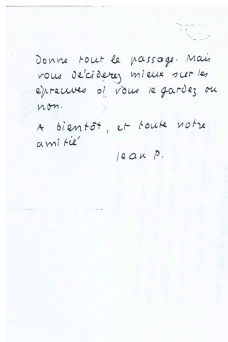 Donne tout le passage. Mais
vous déciderez mieux sur les
épreuves si vous le gardez ou
non.
A bientôt, et toute notre
amitié
Jean P.